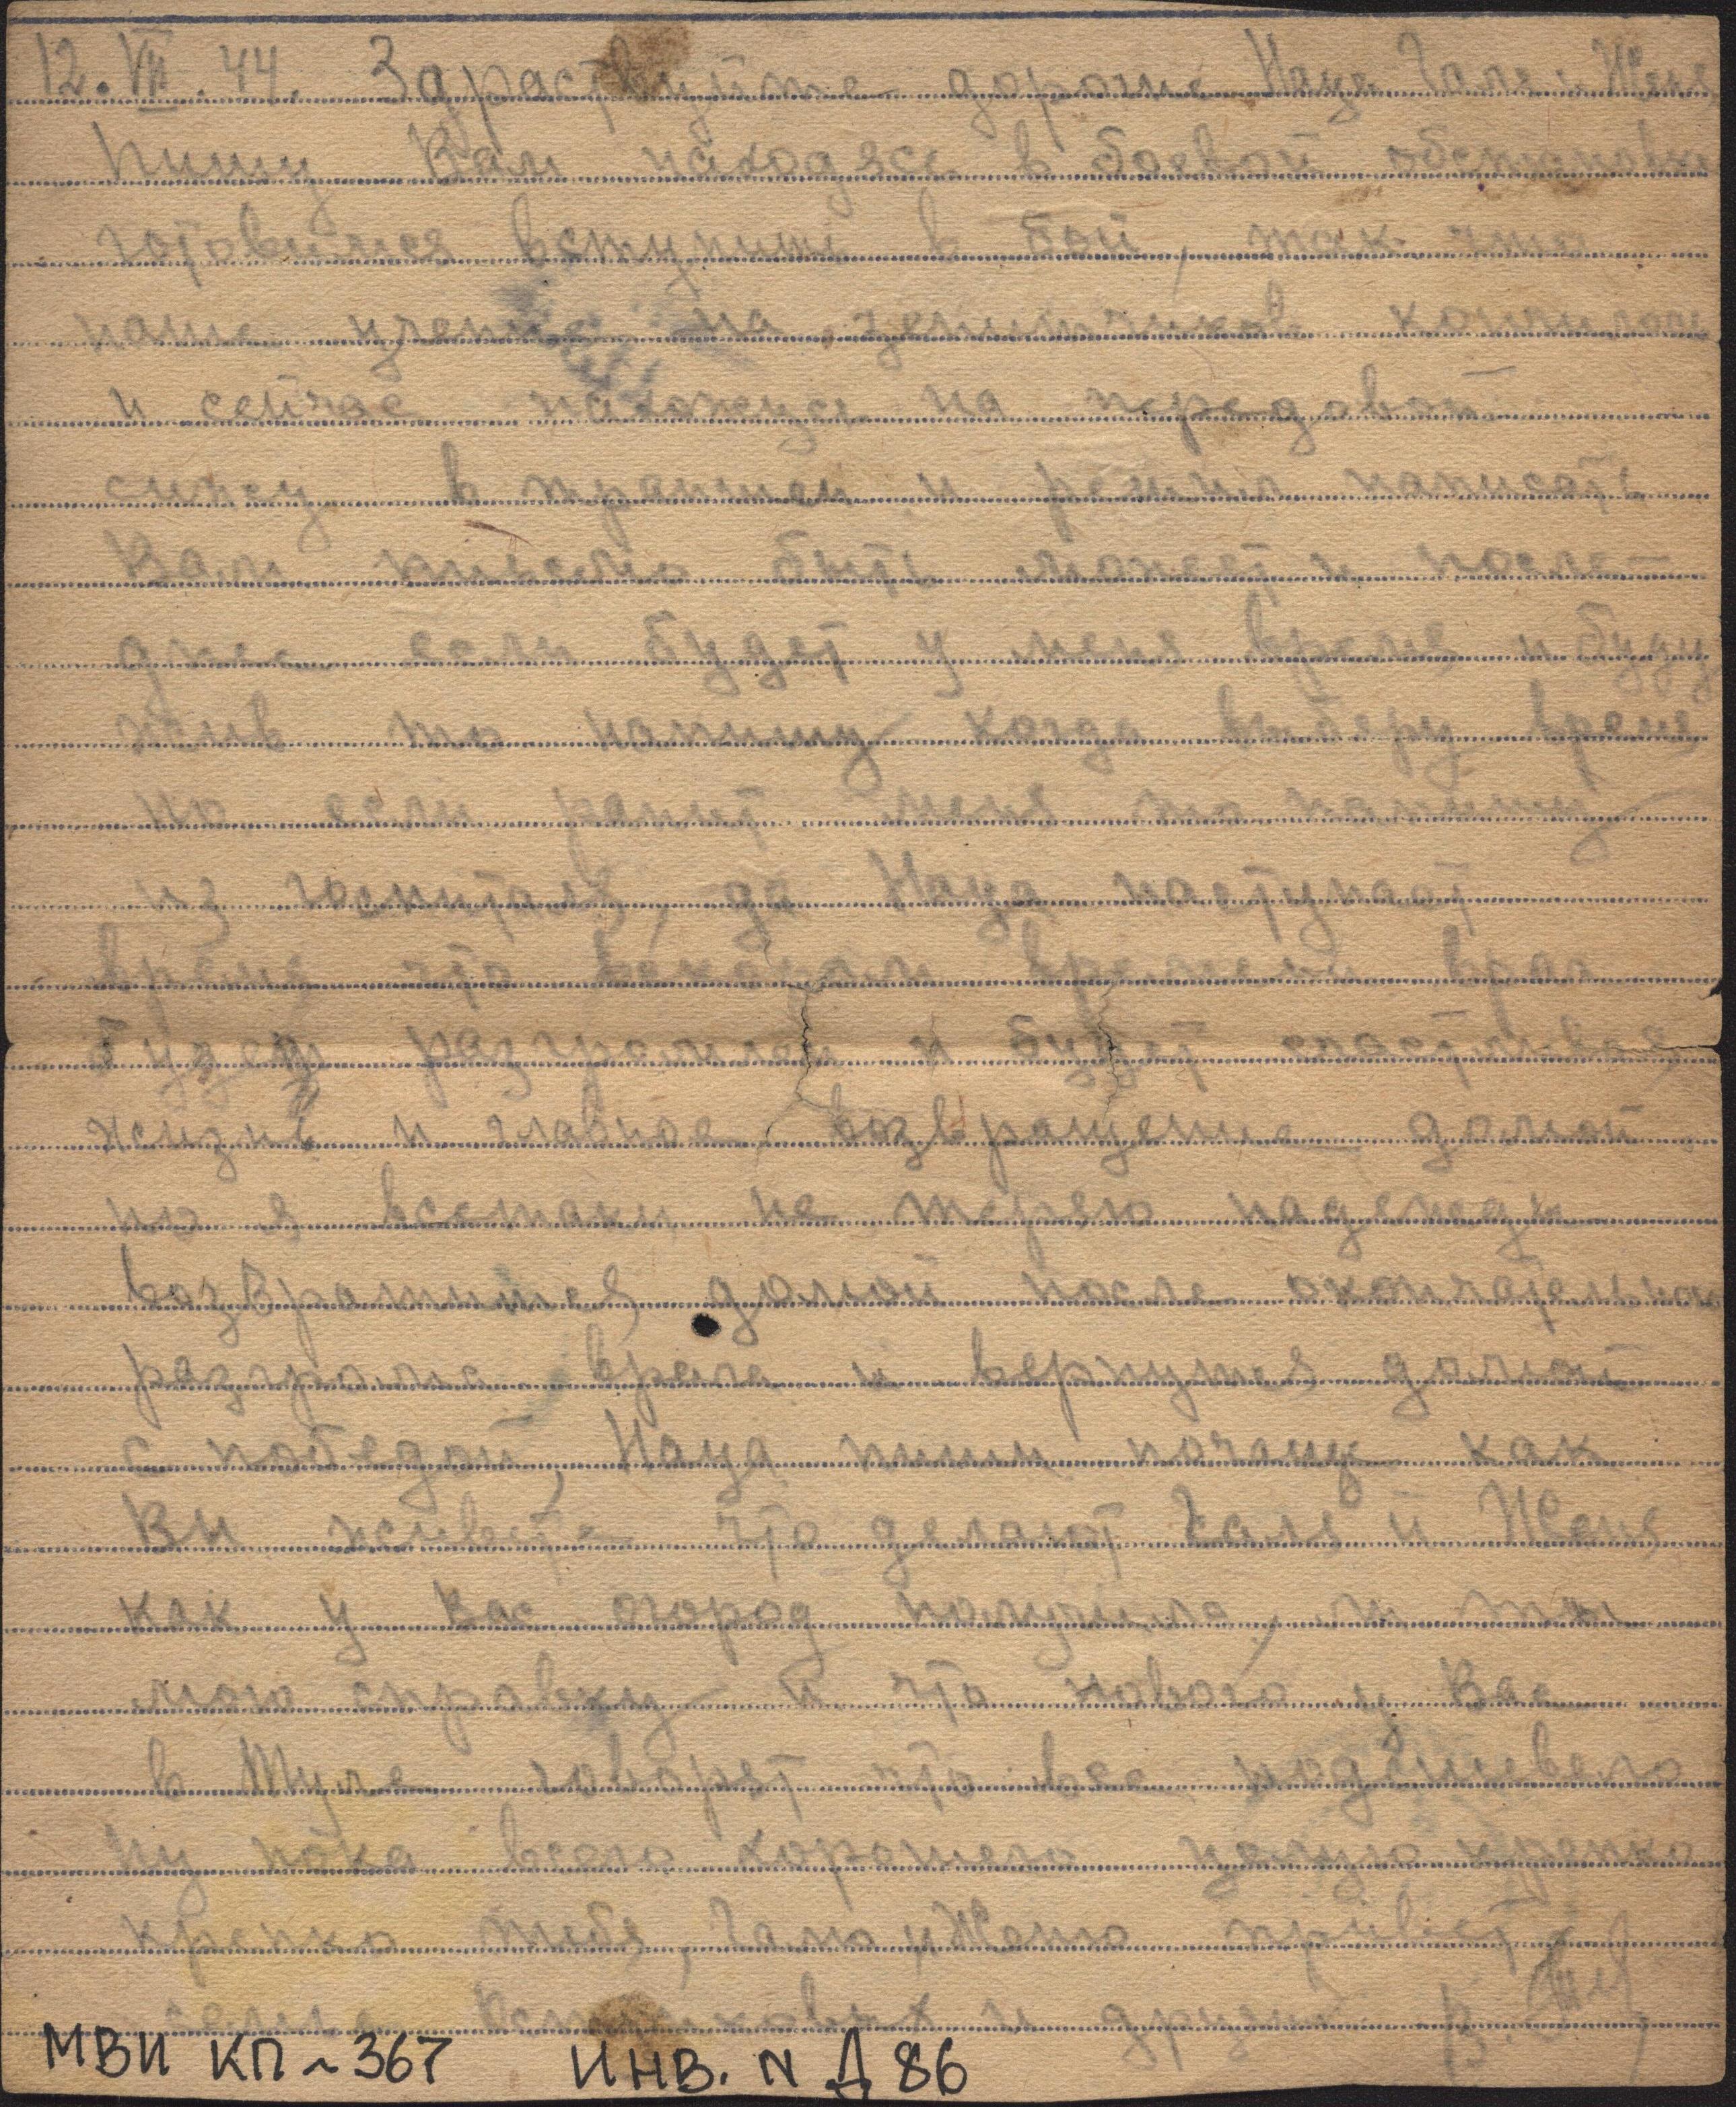 12.VII.44. Здраствуйте дорогие Надя Галя и Женя
Пишу Вам находясь в боевой обстановке
готовимся вступить в бой, так что
наше учение на зенитчиков кончилось
и сейчас нахожусь на передовой
сижу в траншеи и решил написать
Вам письмо быть может и послед
днее если будет у меня время и буду
жив то напишу когда выберу время
но если ранит меня то напишу
из госпиталя, да Надя наступает
время что вскором времени враг
будет разгромлен и будет счастливая
жизнь и главное возвращение домой
но я всетаки не теряю надежды
возвратится домой после окончательного
разгрома врага и вернутся домой
с победой, Надя пиши почаще как
Вы живете что делают Галя и Женя
как у Вас огород получила, ли ты
мою справку и что нового у Вас
в Туле говорят что все подешевело
ну пока всего хорошего целую крепко
крепко тебя, Галю, Женю привет
и другим
МВИ КП~367 ИНВ. N Д 86